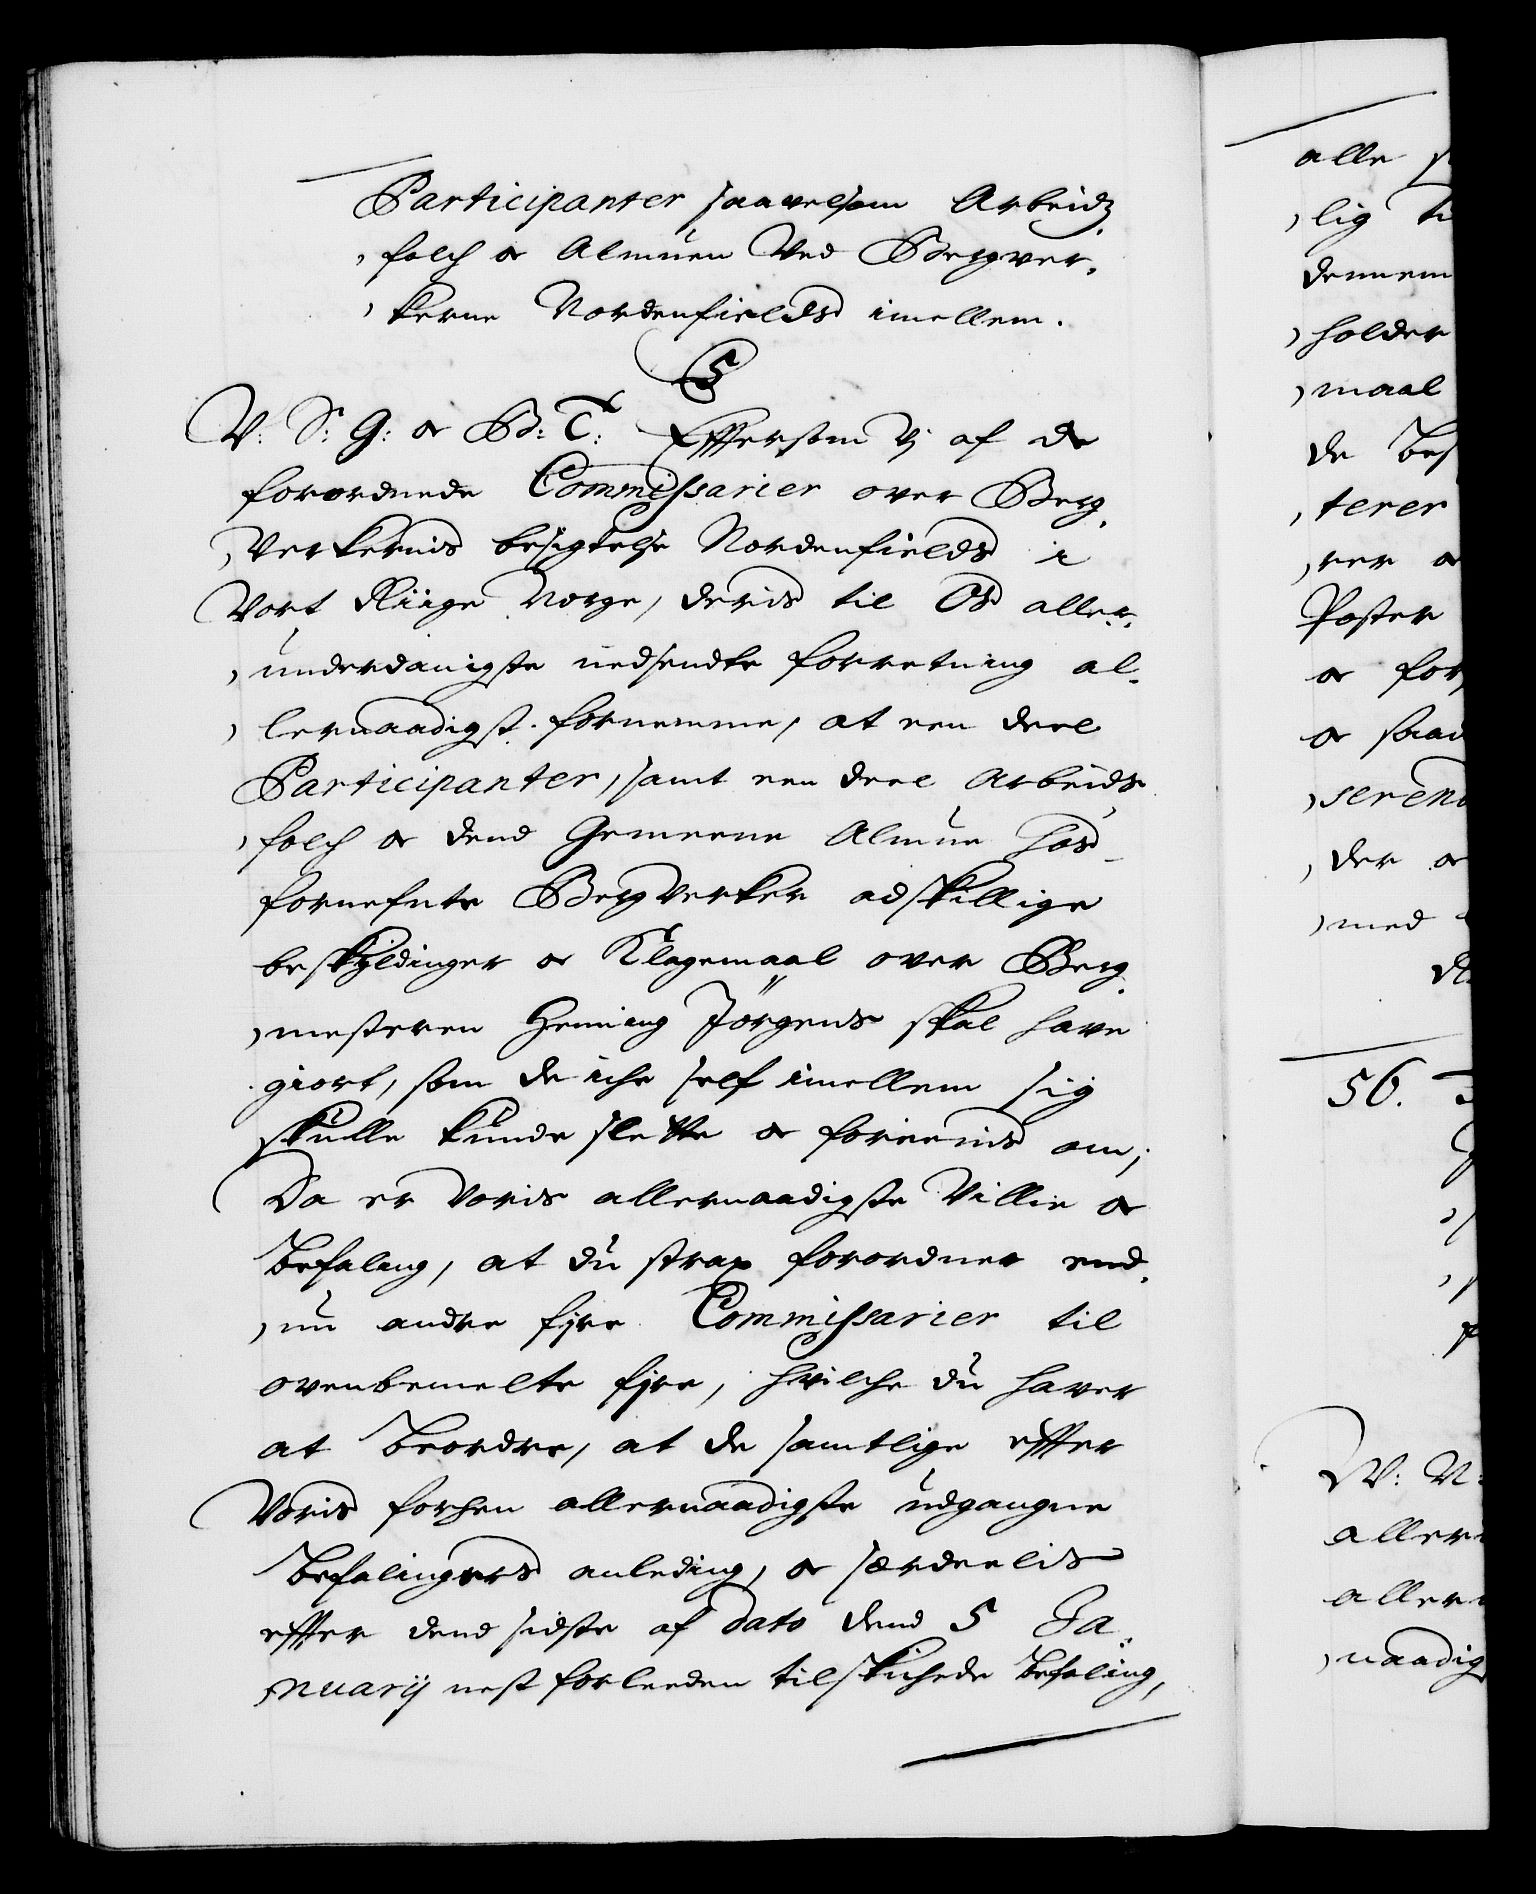 Participanter saavelsom Arbeidz
folch oc Almuen Ved Bergver,
kerne Nordenfields imellem.
V: S: G: oc B: T: Effersom Vj af de
forordnede Commissarier over Berg,
Verkernis besigtelse Nordenfields i
Vort Riige Norge, deris til Os aller,
underdanigste nedsendte forretning al,
lernaadigst fornemme, at een deel
Participanter, samt een deel Arbeids
folch oc dend Gemeene Almue hos
fornefnte BergVerker adskillige
beskyldinger oc Klagemaal over Berg,
mesteren Henning Jörgens skal have
giort, som de iche self imellem sig
skulle kunde slette oc foreenis om,
Da er Voris allernaadigste Villie oc
Befaling, at du strax forordner end,
nu andre fire Commissarier til
ovenbemelte fire, hvilche du haver
at Beordre, at de samtlige effter
Voris forhen allernaadigste udgangne
Befalingers anleding, oc særdeelis
effter dend sidste af dato dend 5 Ja,
nuarij nest forleeden tilskichede Befaling,
alle
lig
dennem
holder
maal
de
terer
ver oc
Poster
oc
oc
der oc
med
56.
W: V:
naadig